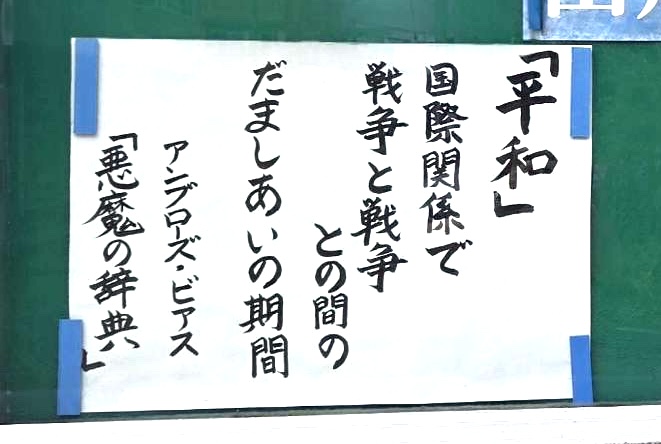 「平和」
国際関係で
戦争と戦争
との間の
だましあいの期間
アンブローズ・ビアス
「悪魔の辞典」